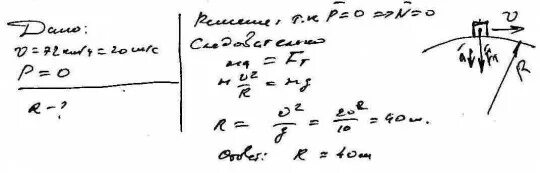 Дано:
v = 72 км/ч = 20 м/с
P = 0
R - ?
Решение, т.к P̄ = 0 => N̄ = 0
Следовательно
ma = Fт
m v²/R = mg
R = v²/g = 20²/10 = 40 м.
Ответ: R = 40 м
v̄
ā
F̄т
R